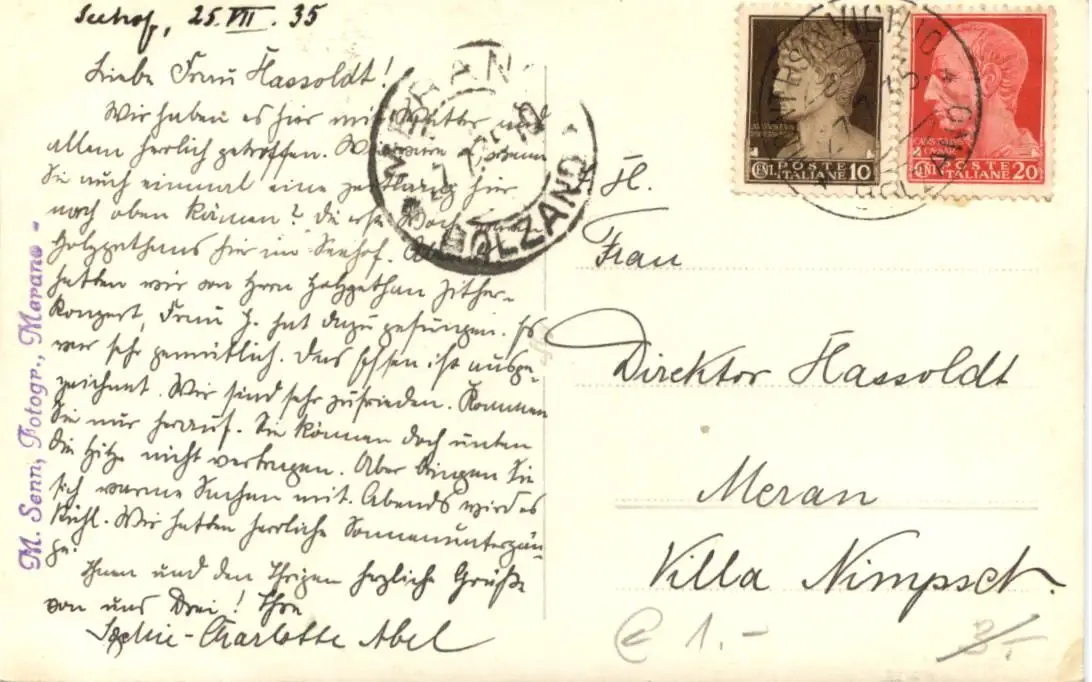 Seehof, 25.VII.35
Liebe Frau Hassoldt!
Wir haben es hier mit Wetter und
allem herrlich getroffen. Wie wäre es, wenn
Sie auch einmal eine zeitlang hier
nach oben kämen? Die erste Woche
Holzgethans hier im Seehof.
hatten wir von Herrn Holzgethan Zither-
konzert, Frau H. hat dazu gesungen. Es
war sehr gemütlich. Das Essen ist ausge-
zeichnet. Wir sind sehr zufrieden. Kommen
Sie nur herauf. Sie können doch unten
die Hitze nicht vertragen. Aber bringen Sie
sich warme Sachen mit. Abends wird es
kühl. Wir hatten herrliche Sonnenuntergän-
ge.
Ihnen und den Ihrigen herzliche Grüße
von uns Drei! Ihre
Sophie-Charlotte Abel
M. Senn, Fotogr., Merano -
MERANO
BOLZANO
POSTE
ITALIANE
CENT. 10
POSTE
ITALIANE
CENT. 20
BOLZANO
H.
Frau
Direktor Hassoldt
Meran
Villa Nimpsch.
€ 1.-
3/-